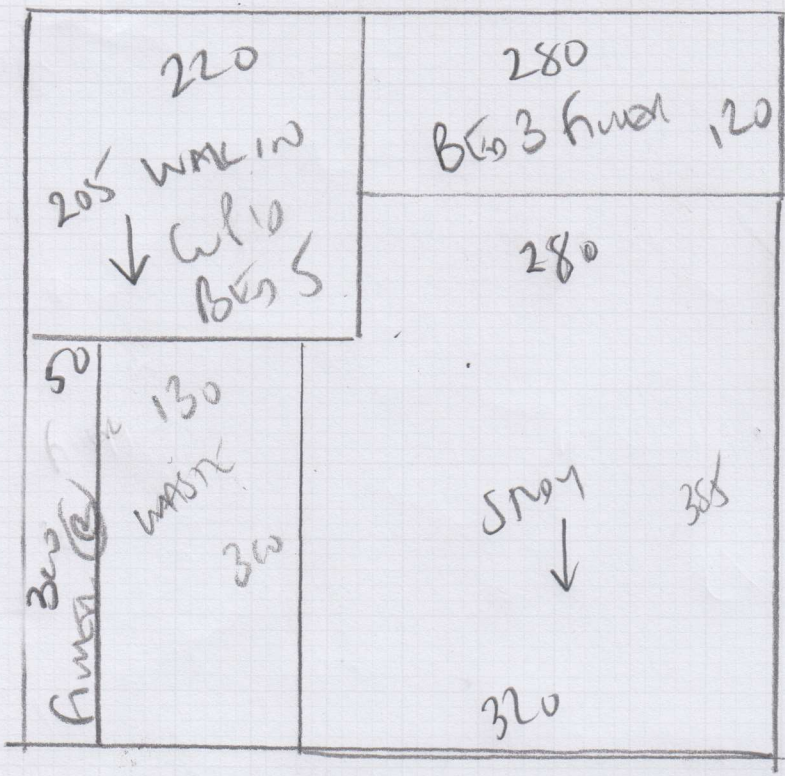 220
205 WALK IN
CUP'D
BED 5
280
BED 3 FILLER 120
280
50
130
WASTE
300
300
FILLER
STUDY
385
320